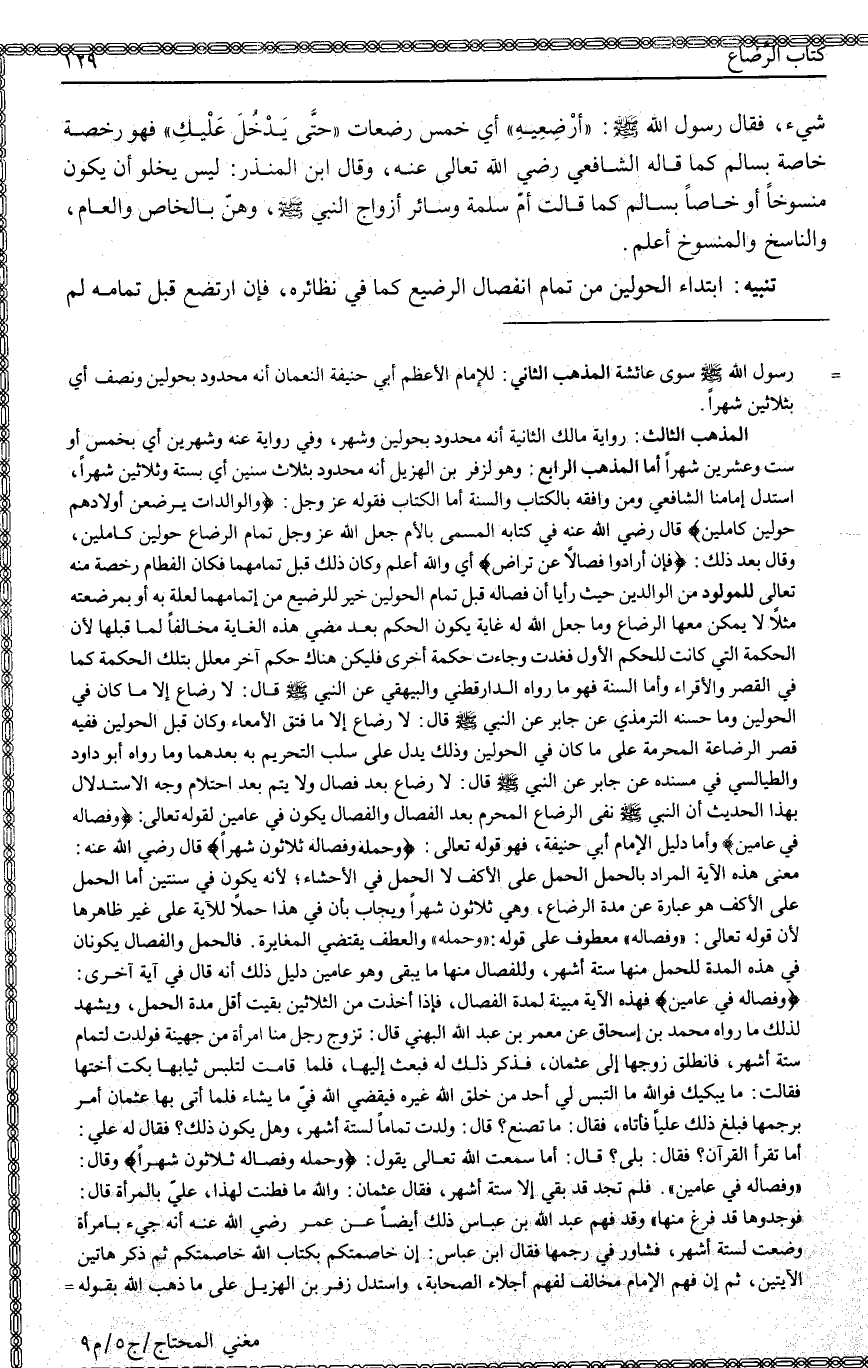 كتاب الرَّضاع ١٢٩
شيء، فقال رسول الله ﷺ: «أَرْضِعِيهِ» أي خمس رضعات «حتَّى يَدْخُلَ عَلَيْكِ» فهو رخصة
خاصة بسالم كما قاله الشافعي رضي الله تعالى عنه، وقال ابن المنذر: ليس يخلو أن يكون
منسوخاً أو خاصاً بسالم كما قالت أمّ سلمة وسائر أزواج النبي ﷺ، وهنّ بالخاص والعام،
والناسخ والمنسوخ أعلم.
تنبيه: ابتداء الحولين من تمام انفصال الرضيع كما في نظائره، فإن ارتضع قبل تمامه لم
= رسول الله ﷺ سوى عائشة المذهب الثاني: للإمام الأعظم أبي حنيفة النعمان أنه محدود بحولين ونصف أي
بثلاثين شهراً.
المذهب الثالث: رواية مالك الثانية أنه محدود بحولين وشهر، وفي رواية عنه وشهرين أي بخمس أو
ست وعشرين شهراً أما المذهب الرابع: وهو لزفر بن الهزيل أنه محدود بثلاث سنين أي بستة وثلاثين شهراً،
استدل إمامنا الشافعي ومن وافقه بالكتاب والسنة أما الكتاب فقوله عز وجل: ﴿والوالدات يرضعن أولادهم
حولين كاملين﴾ قال رضي الله عنه في كتابه المسمى بالأم جعل الله عز وجل تمام الرضاع حولين كاملين،
وقال بعد ذلك: ﴿فإن أرادوا فصالاً عن تراض﴾ أي والله أعلم وكان ذلك قبل تمامهما فكان الفطام رخصة منه
تعالى للمولود من الوالدين حيث رأيا أن فصاله قبل تمام الحولين خير للرضيع من إتمامهما لعلة به أو بمرضعته
مثلاً لا يمكن معها الرضاع وما جعل الله له غاية يكون الحكم بعد مضي هذه الغاية مخالفاً لما قبلها لأن
الحكمة التي كانت للحكم الأول فغدت وجاءت حكمة أخرى فليكن هناك حكم آخر معلل بتلك الحكمة كما
في القصر والأقراء وأما السنة فهو ما رواه الدارقطني والبيهقي عن النبي ﷺ قال: لا رضاع إلا ما كان في
الحولين وما حسنه الترمذي عن جابر عن النبي ﷺ قال: لا رضاع إلا ما فتق الأمعاء وكان قبل الحولين ففيه
قصر الرضاعة المحرمة على ما كان في الحولين وذلك يدل على سلب التحريم به بعدهما وما رواه أبو داود
والطيالسي في مسنده عن جابر عن النبي ﷺ قال: لا رضاع بعد فصال ولا يتم بعد احتلام وجه الاستدلال
بهذا الحديث أن النبي ﷺ نفى الرضاع المحرم بعد الفصال والفصال يكون في عامين لقوله تعالى: ﴿وفصاله
في عامين﴾ وأما دليل الإمام أبي حنيفة، فهو قوله تعالى: ﴿وحمله وفصاله ثلاثون شهراً﴾ قال رضي الله عنه:
معنى هذه الآية المراد بالحمل الحمل على الأكف لا الحمل في الأحشاء؛ لأنه يكون في سنتين أما الحمل
على الأكف هو عبارة عن مدة الرضاع، وهي ثلاثون شهراً ويجاب بأن في هذا حملاً للآية على غير ظاهرها
لأن قوله تعالى: «وفصاله» معطوف على قوله: «وحمله» والعطف يقتضي المغايرة. فالحمل والفصال يكونان
في هذه المدة للحمل منها ستة أشهر، وللفصال منها ما يبقى وهو عامين دليل ذلك أنه قال في آية آخرى:
﴿وفصاله في عامين﴾ فهذه الآية مبينة لمدة الفصال، فإذا أخذت من الثلاثين بقيت أقل مدة الحمل، ويشهد
لذلك ما رواه محمد بن إسحاق عن معمر بن عبد الله البهني قال: تزوج رجل منا امرأة من جهينة فولدت لتمام
ستة أشهر، فانطلق زوجها إلى عثمان، فذكر ذلك له فبعث إليها، فلما قامت لتلبس ثيابها بكت أختها
فقالت: ما يبكيك فوالله ما التبس لي أحد من خلق الله غيره فيقضي الله فيّ ما يشاء فلما أتى بها عثمان أمر
برجمها فبلغ ذلك علياً فأتاه، فقال: ما تصنع؟ قال: ولدت تماماً لستة أشهر، وهل يكون ذلك؟ فقال له علي:
أما تقرأ القرآن؟ فقال: بلى؟ قال: أما سمعت الله تعالى يقول: ﴿وحمله وفصاله ثلاثون شهراً﴾ وقال:
«وفصاله في عامين». فلم تجد قد بقي إلا ستة أشهر، فقال عثمان: والله ما فطنت لهذا، عليّ بالمرأة قال:
فوجدوها قد فرغ منها» وقد فهم عبد الله بن عباس ذلك أيضاً عن عمر رضي الله عنه أنه جيء بامرأة
وضعت لستة أشهر، فشاور في رجمها فقال ابن عباس: إن خاصمتكم بكتاب الله خاصمتكم ثم ذكر هاتين
الآيتين، ثم إن فهم الإمام مخالف لفهم أجلاء الصحابة، واستدل زفر بن الهزيل على ما ذهب الله بقوله =
مغني المحتاج/ج٥/م٩